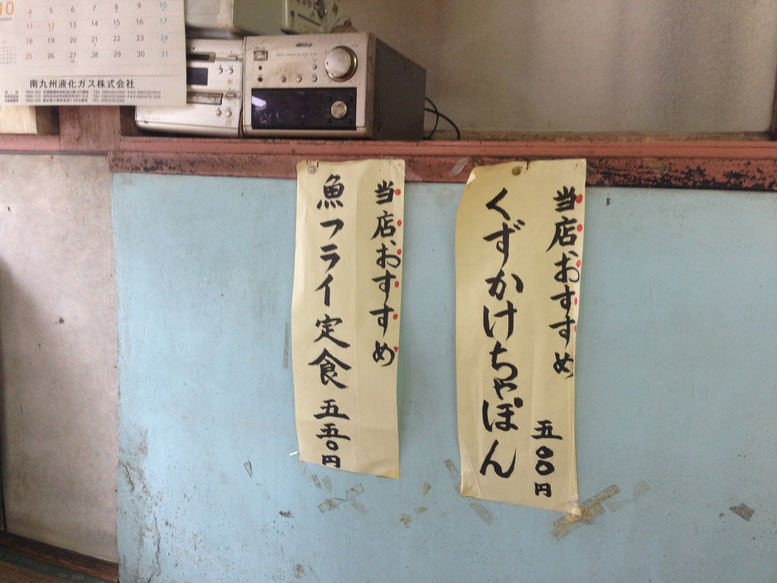 10
4 5 6 7 8 9 10
11 12 13 14 15 16 17
18 19 20 21 22 23 24
25 26 27 28 29 30 31
南九州液化ガス株式会社
当店おすすめ
くずかけちゃぽん
五〇〇円
当店おすすめ
魚フライ定食 五五〇円